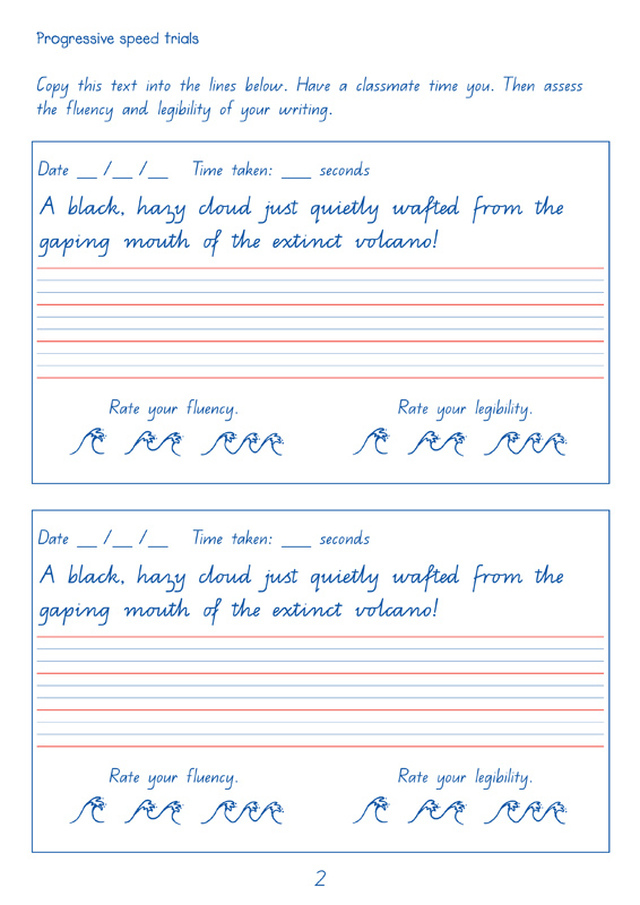 Progressive speed trials
Copy this text into the lines below. Have a classmate time you. Then assess
the fluency and legibility of your writing.
Date __ /__ /__ Time taken: ___ seconds
A black, hazy cloud just quietly wafted from the
gaping mouth of the extinct volcano!
Rate your fluency. Rate your legibility.
Date __ /__ /__ Time taken: ___ seconds
A black, hazy cloud just quietly wafted from the
gaping mouth of the extinct volcano!
Rate your fluency. Rate your legibility.
2